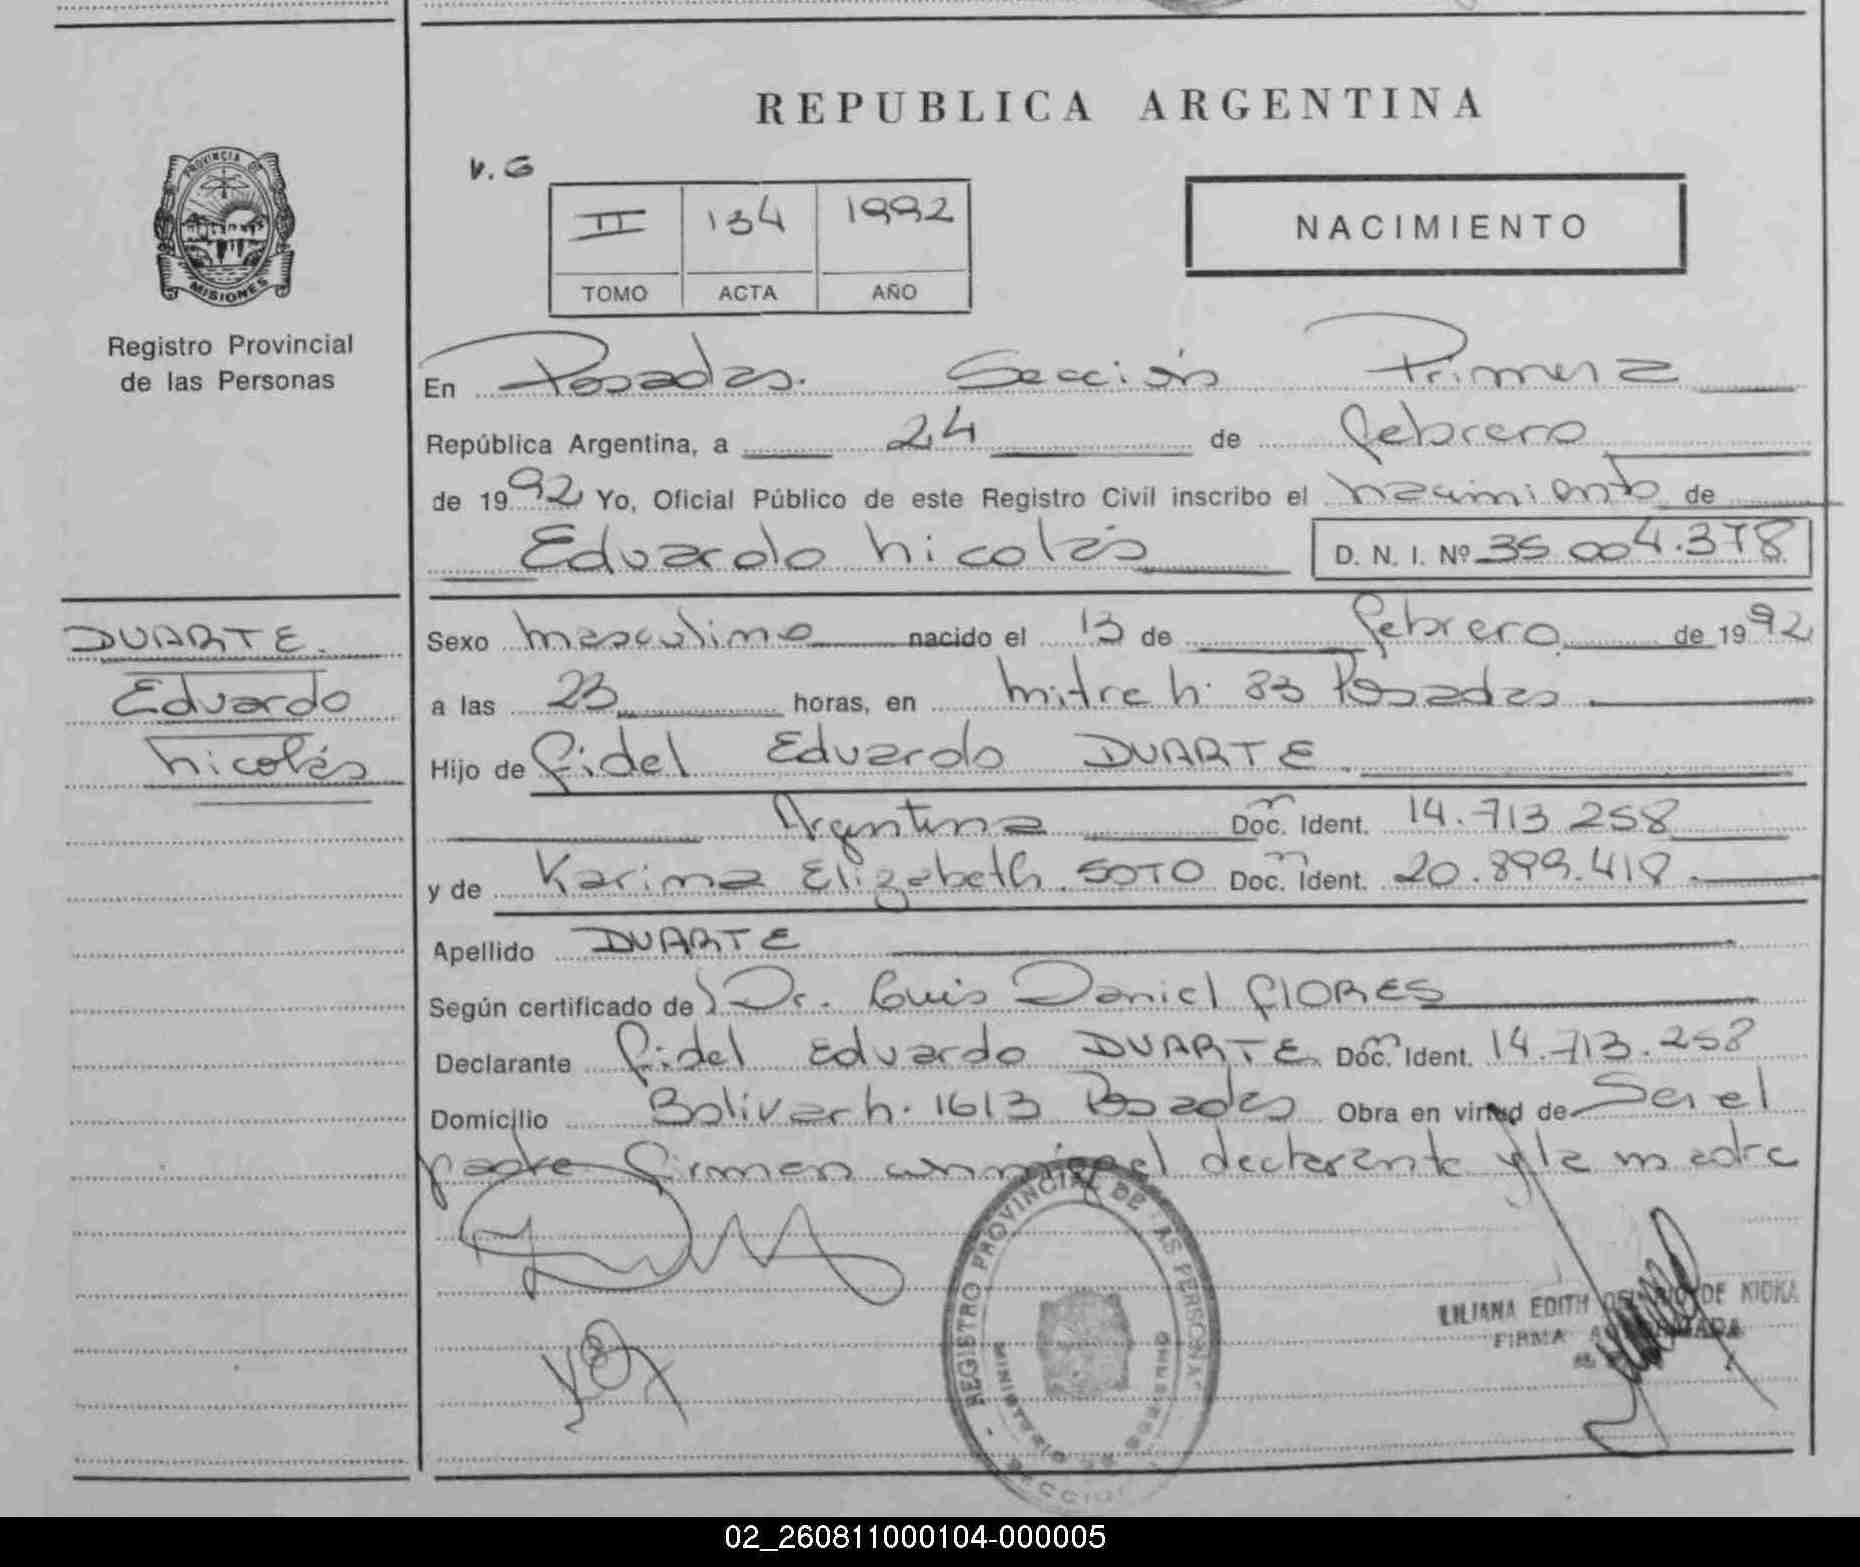 REPUBLICA ARGENTINA
V.G
II 134 1992
TOMO ACTA AÑO
NACIMIENTO
PROVINCIA DE
MISIONES
Registro Provincial
de las Personas
En Posadas. Sección Primera
República Argentina, a 24 de febrero
de 1992 Yo, Oficial Público de este Registro Civil inscribo el nacimiento de
Eduardo Nicolás D. N. I. Nº 35.004.378
DUARTE.
Eduardo
Nicolás
Sexo masculino nacido el 13 de febrero de 1992
a las 23 horas, en Mitre N. 83 Posadas
Hijo de Fidel Eduardo DUARTE
Argentina Doc. Ident. 14.713.258
y de Karina Elizabeth SOTO Doc. Ident. 20.899.418
Apellido DUARTE
Según certificado de Dr. Luis Daniel FLORES
Declarante Fidel Eduardo DUARTE Doc. Ident. 14.713.258
Domicilio Bolivar N. 1613 Posadas Obra en virtud de Ser el
padre firman conmigo el declarante y la madre
REGISTRO PROVINCIAL DE LAS PERSONAS
MINISTERIO DE GOBIERNO
LILIANA EDITH DE KIDKA
FIRMA AUTORIZADA
02_260811000104-000005